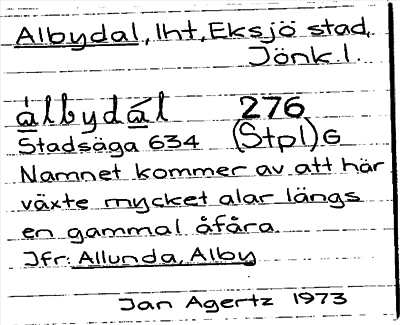 Albydal, lht, Eksjö stad,
Jönk. l.
àlbydál 276
Stadsäga 634 (Stpl) G
Namnet kommer av att här
växte mycket alar längs
en gammal åfåra.
Jfr: Allunda, Alby
Jan Agertz 1973